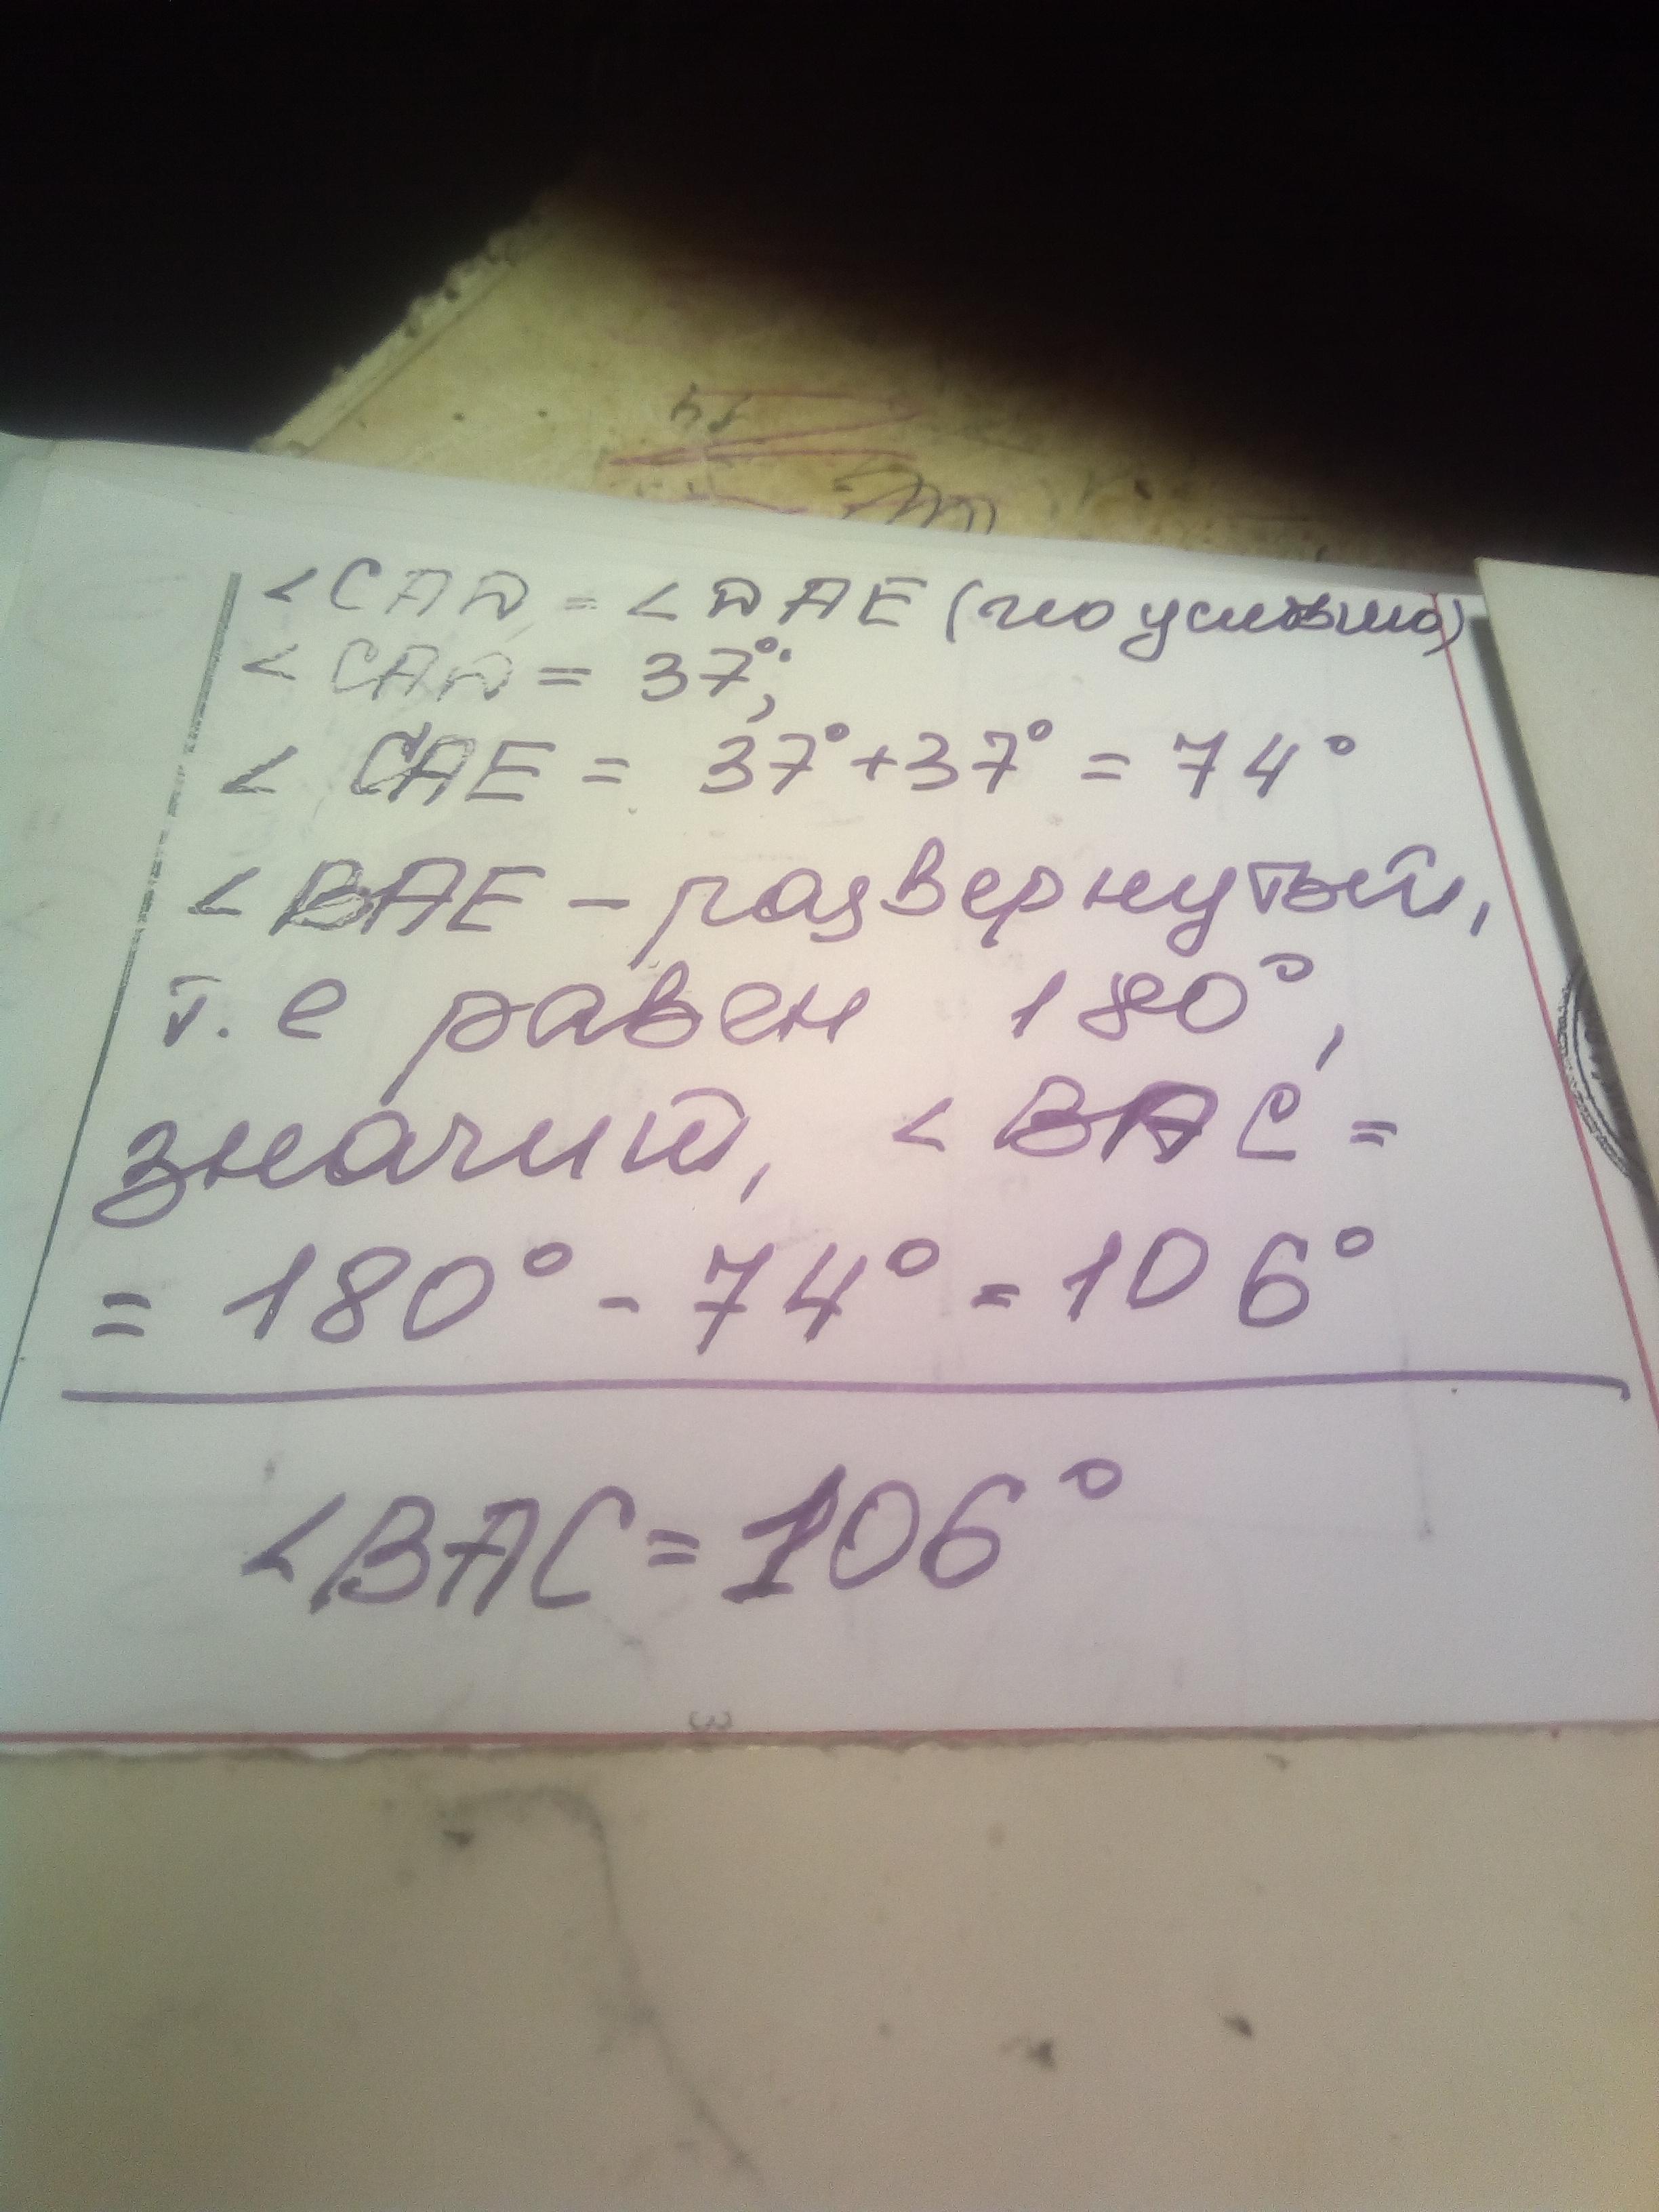 <CAД = <ДAE (по условию)
<CAД = 37°;
< CAE = 37°+37° = 74°
<BAE – развернутый,
т.е равен 180°,
значит, <BAC =
= 180° - 74° = 106°
<BAC = 106°